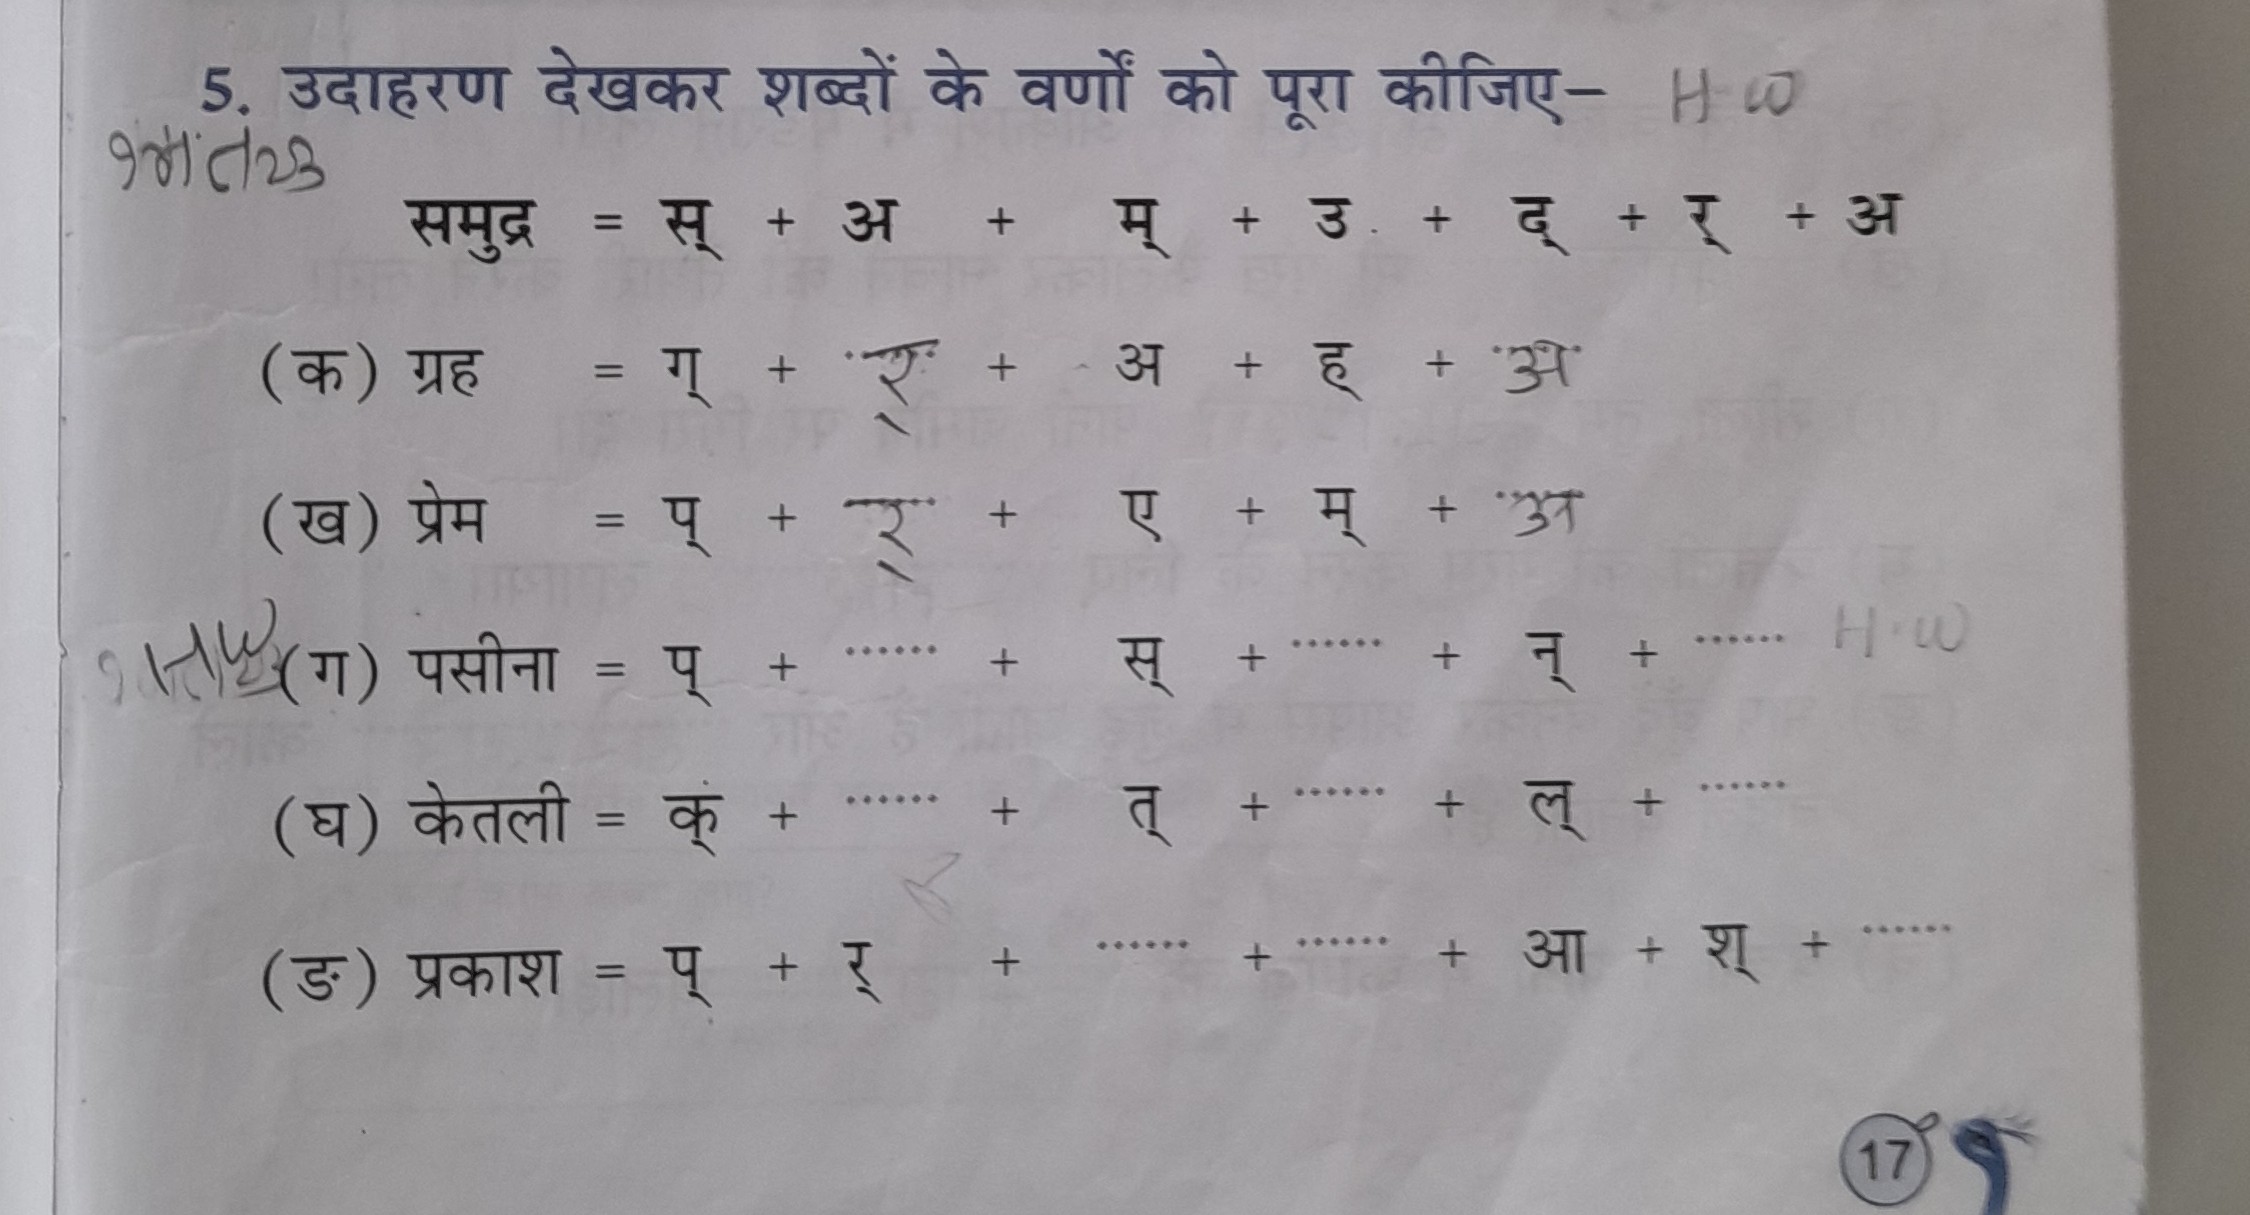 5. उदाहरण देखकर शब्दों के वर्णों को पूरा कीजिए– H.W
समुद्र = स् + अ + म् + उ + द् + र् + अ
(क) ग्रह = ग् + र् + अ + ह् + अ
(ख) प्रेम = प् + र् + ए + म् + अ
(ग) पसीना = प् + ...... + स् + ...... + न् + ...... H.W
(घ) केतली = क् + ...... + त् + ...... + ल् + ......
(ङ) प्रकाश = प् + र् + ...... + ...... + आ + श् + ......
17